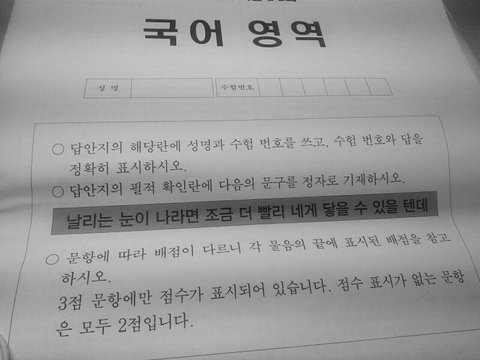 국어 영역
성 명
수험번호
○ 답안지의 해당란에 성명과 수험 번호를 쓰고, 수험 번호와 답을
정확히 표시하시오.
○ 답안지의 필적 확인란에 다음의 문구를 정자로 기재하시오.
날리는 눈이 나라면 조금 더 빨리 네게 닿을 수 있을 텐데
○ 문항에 따라 배점이 다르니 각 물음의 끝에 표시된 배점을 참고
하시오.
3점 문항에만 점수가 표시되어 있습니다. 점수 표시가 없는 문항
은 모두 2점입니다.